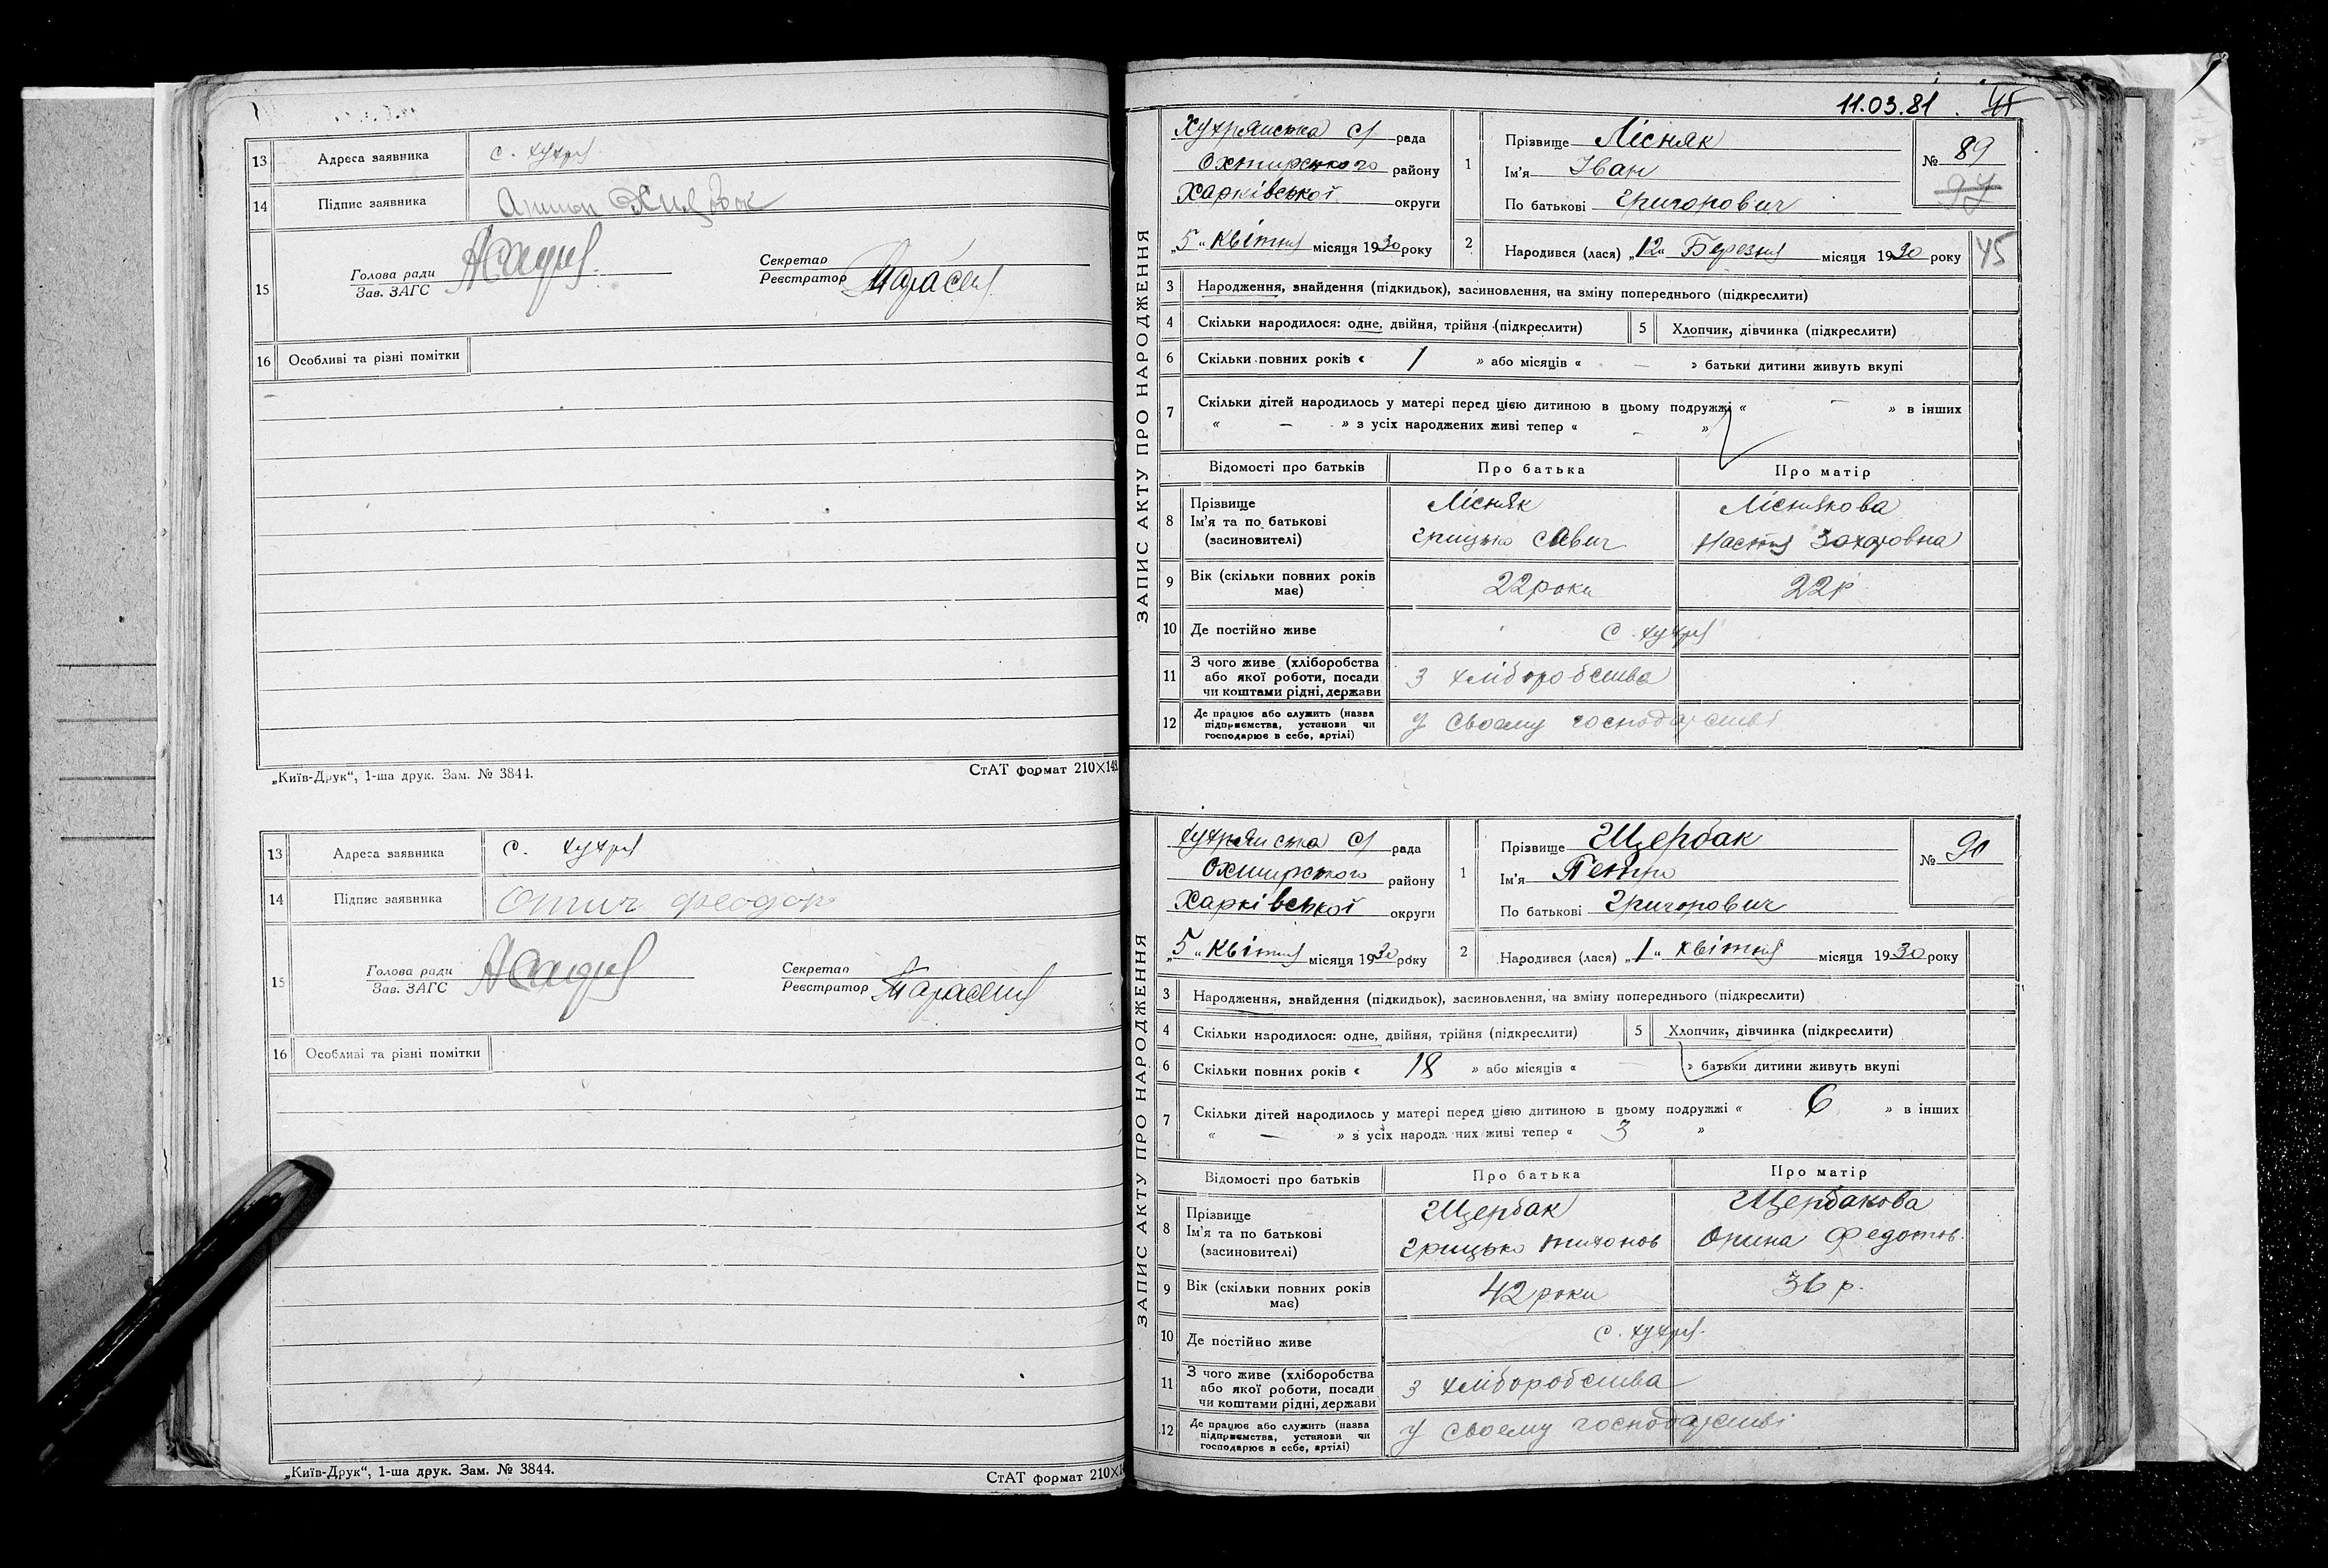 13 Адреса заявника с. Хухря
14 Підпис заявника
15 Голова ради Секретар
Зав. ЗАГС Реєстратор
16 Особливі та різні помітки
„Київ-Друк“, 1-ша друк. Зам. № 3844. СтАТ формат 210×148
13 Адреса заявника с. Хухря
14 Підпис заявника
15 Голова ради Секретар
Зав. ЗАГС Реєстратор
16 Особливі та різні помітки
„Київ-Друк“, 1-ша друк. Зам. № 3844. СтАТ формат 210×1
11.03.81
ЗАПИС АКТУ ПРО НАРОДЖЕННЯ
Хухрянська с/ рада
Охтирського району
Харківської округи
„5“ Квітня місяця 1930 року
1 Прізвище Лісняк
Ім'я Іван
По батькові Григорович
№ 89
97
2 Народився (лася) „12“ Березня місяця 1930 року 45
3 Народження, знайдення (підкидьок), засиновлення, на зміну попереднього (підкреслити)
4 Скільки народилося: одне, двійня, трійня (підкреслити) 5 Хлопчик, дівчинка (підкреслити)
6 Скільки повних років « 1 » або місяців « — » батьки дитини живуть вкупі
7 Скільки дітей народилось у матері перед цією дитиною в цьому подружжі « — » в інших
« — » з усіх народжених живі тепер « — »
Відомості про батьків Про батька Про матір
8 Прізвище Лісняк Ліснякова
Ім'я та по батькові Грицько Савич Настя Захаровна
(засиновителі)
9 Вік (скільки повних років має) 22 роки 22 р
10 Де постійно живе с. Хухря
11 З чого живе (хліборобства
або якої роботи, посади з хліборобства
чи коштами рідні, держави
12 Де працює або служить (назва
підприємства, установи чи у своєму господарстві
господарює в себе, артілі)
ЗАПИС АКТУ ПРО НАРОДЖЕННЯ
Хухрянська с/ рада
Охтирського району
Харківської округи
„5“ Квітня місяця 1930 року
1 Прізвище Щербак
Ім'я Петро
По батькові Григорович
№ 90
2 Народився (лася) „1“ Квітня місяця 1930 року
3 Народження, знайдення (підкидьок), засиновлення, на зміну попереднього (підкреслити)
4 Скільки народилося: одне, двійня, трійня (підкреслити) 5 Хлопчик, дівчинка (підкреслити)
6 Скільки повних років « 18 » або місяців « — » батьки дитини живуть вкупі
7 Скільки дітей народилось у матері перед цією дитиною в цьому подружжі « 6 » в інших
« — » з усіх народжених живі тепер « 3 »
Відомості про батьків Про батька Про матір
8 Прізвище Щербак Щербакова
Ім'я та по батькові Грицько Тихонов Орина Федотов.
(засиновителі)
9 Вік (скільки повних років має) 42 роки 36 р.
10 Де постійно живе с. Хухря.
11 З чого живе (хліборобства
або якої роботи, посади з хліборобства
чи коштами рідні, держави
12 Де працює або служить (назва
підприємства, установи чи у своєму господарстві
господарює в себе, артілі)